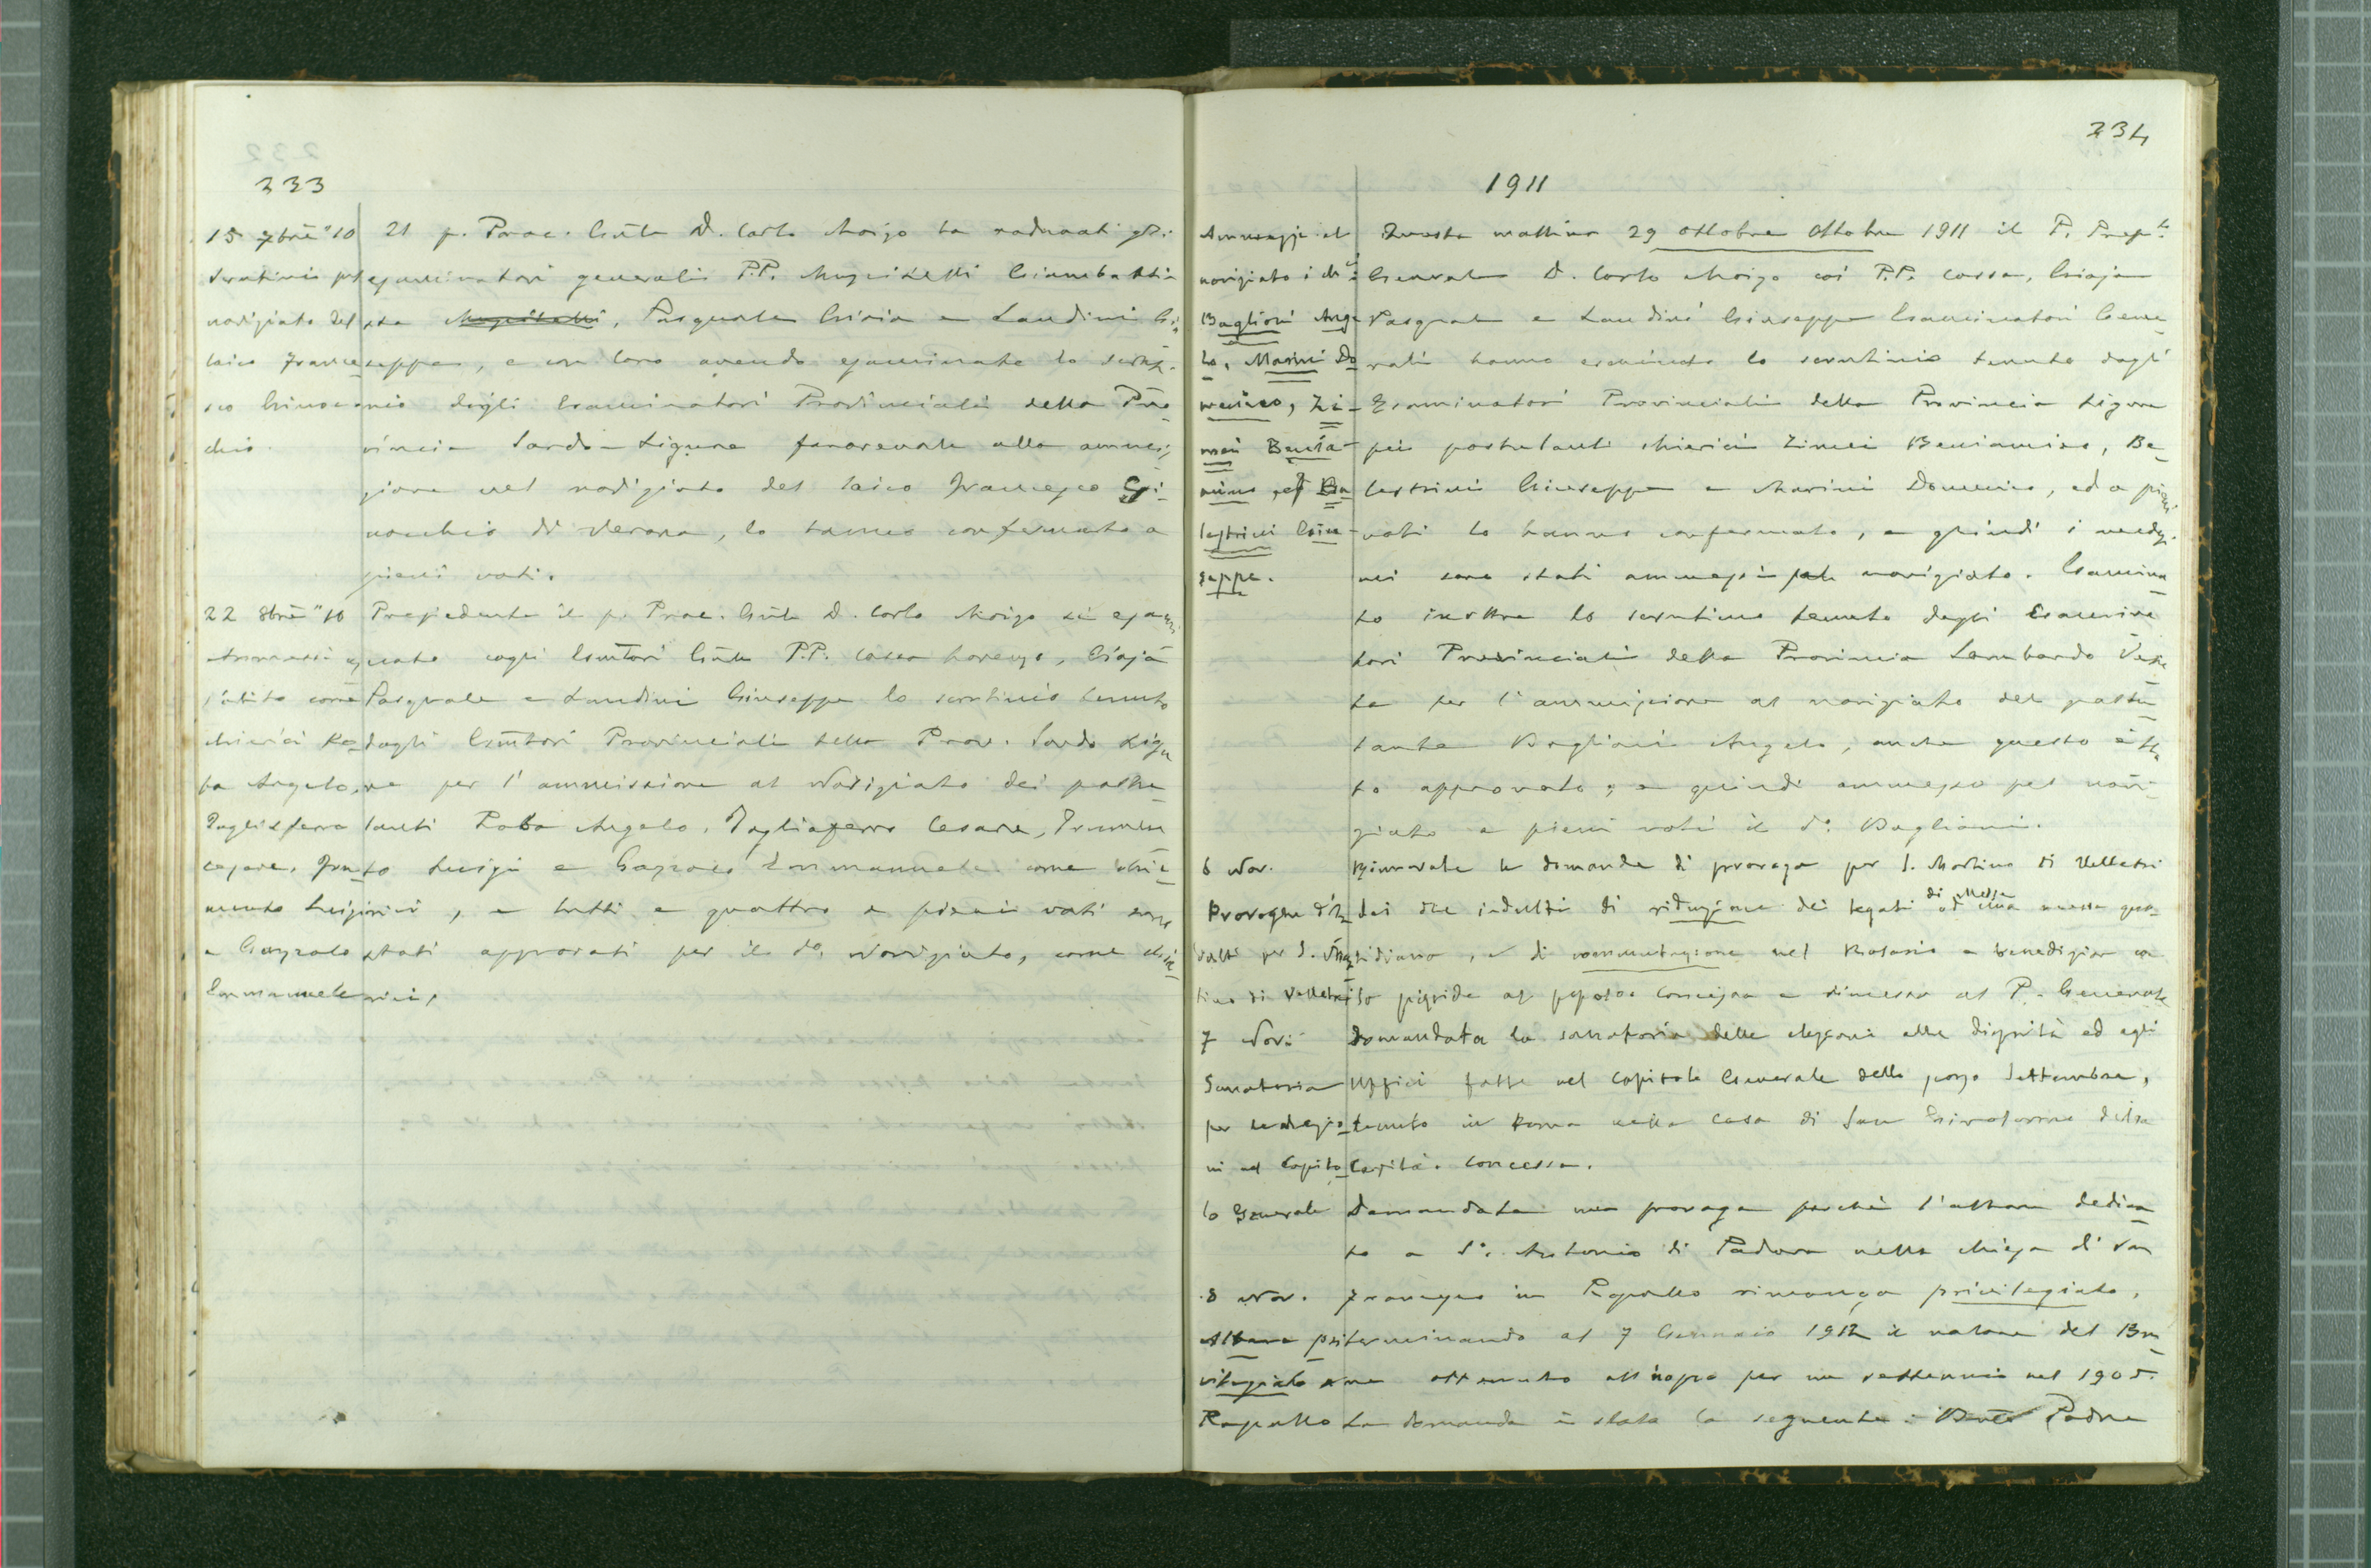 233
15 7bre "10
Scrutinio pel
noviziato del
laico France
sco Ginoc
chio.
Il p. Proc. Gnle D. Carlo Moizo ha radunati gli
esaminatori generali P.P. Muzitelli Giambatti
sta Muzitelli, Pasquale Gioia e Landini Gi
seppe, e con loro avendo esaminato lo scruti
nio degli Esaminatori Provinciali della Pro
vincia Sardo-Ligure favorevole alla ammis
sione nel noviziato del laico Francesco Gi
nocchio di Verona, lo hanno confermato a
pieni voti.
22 8bre "10
Ammessi
come
chierici Ro
ba Angelo,
Tagliaferro
Cesare, Fru
mento Luigi
e Gazzolo
Emmanuele
Presiedente il p. Proc. Gnle D. Carlo Moizo si esami
nato cogli Esmtori Gnli P.P. Cossa Lorenzo, Gioja
Pasquale e Landini Giuseppe lo scrutinio tenuto
dagli Esmtori Provinciali della Prov. Sardo Ligu
re per l'ammissione al Noviziato dei postu
lanti Roba Angelo, Tagliaferro Cesare, Frumen
to Luigi e Gazzolo Emmanuele come chie
rici, e tutti e quattro a pieni voti sono
stati approvati per il do. Noviziato, come chie
rici.
234
1911
Ammessi al
noviziato i ch.i
Baglioni Ange
lo, Marini Do
menico, Zi-
mei Benia-
mino, e Ba
lestrini Giu-
seppe.
Questa mattina 29 ottobre Ottobre 1911 il P. Prep.to
Generale D. Carlo Moizo coi P.P. Cossa, Gioja
Pasquale e Landini Giuseppe Esaminatori Gene
rali hanno esaminato lo scrutinio tenuto dagli
Esaminatori Provinciali della Provincia Ligure
pei postulanti chierici Zimei Beniamino, Ba
lestrini Giuseppe e Marini Domenico, ed a pieni
voti lo hanno confermato, e quindi i medesi
mi sono stati ammessi pel noviziato. Esamina
to inoltre lo scrutinio tenuto dagli Esamina
tori Provinciali della Provincia Lombardo Vene
ta per l'ammissione al noviziato del postu
lante Baglioni Angelo, anche questo è sta
to approvato, e quindi ammesso pel novi-
ziato a pieni voti il do. Baglioni.
6 Nov.
Proroghe d'in
dulti per S. Mar
tino di Velletri
Rinnovate le domande di proroga per S. Martino di Velletri
dei due indulti di riduzione dei legati di Messe ad una messa quo
tidiana, e di commutazione nel Rosario e benedizione
Concessa e rimessa al P. Generale
7 Nov.
Sanatoria
per le elezio
ni nel Capito
lo Generale
Domandata la sanatoria delle elezioni alle dignità ed agli
Uffici fatte nel Capitolo Generale dello scorso Settembre,
tenuto in Roma nella casa di San Girolamo della
Carità. Concessa.
8 Nov.
Altare pri
vilegiato a
Rapallo
Domandata una proroga perchè l'altare dedica
to a S. Antonio di Padova nella chiesa di San
Francesco in Rapallo rimanga privilegiato,
terminando al 7 Gennaio 1912 il valore del Bre
ve ottenuto all'uopo per un settennio nel 1905.
La domanda è stata la seguente: Bmo Padre